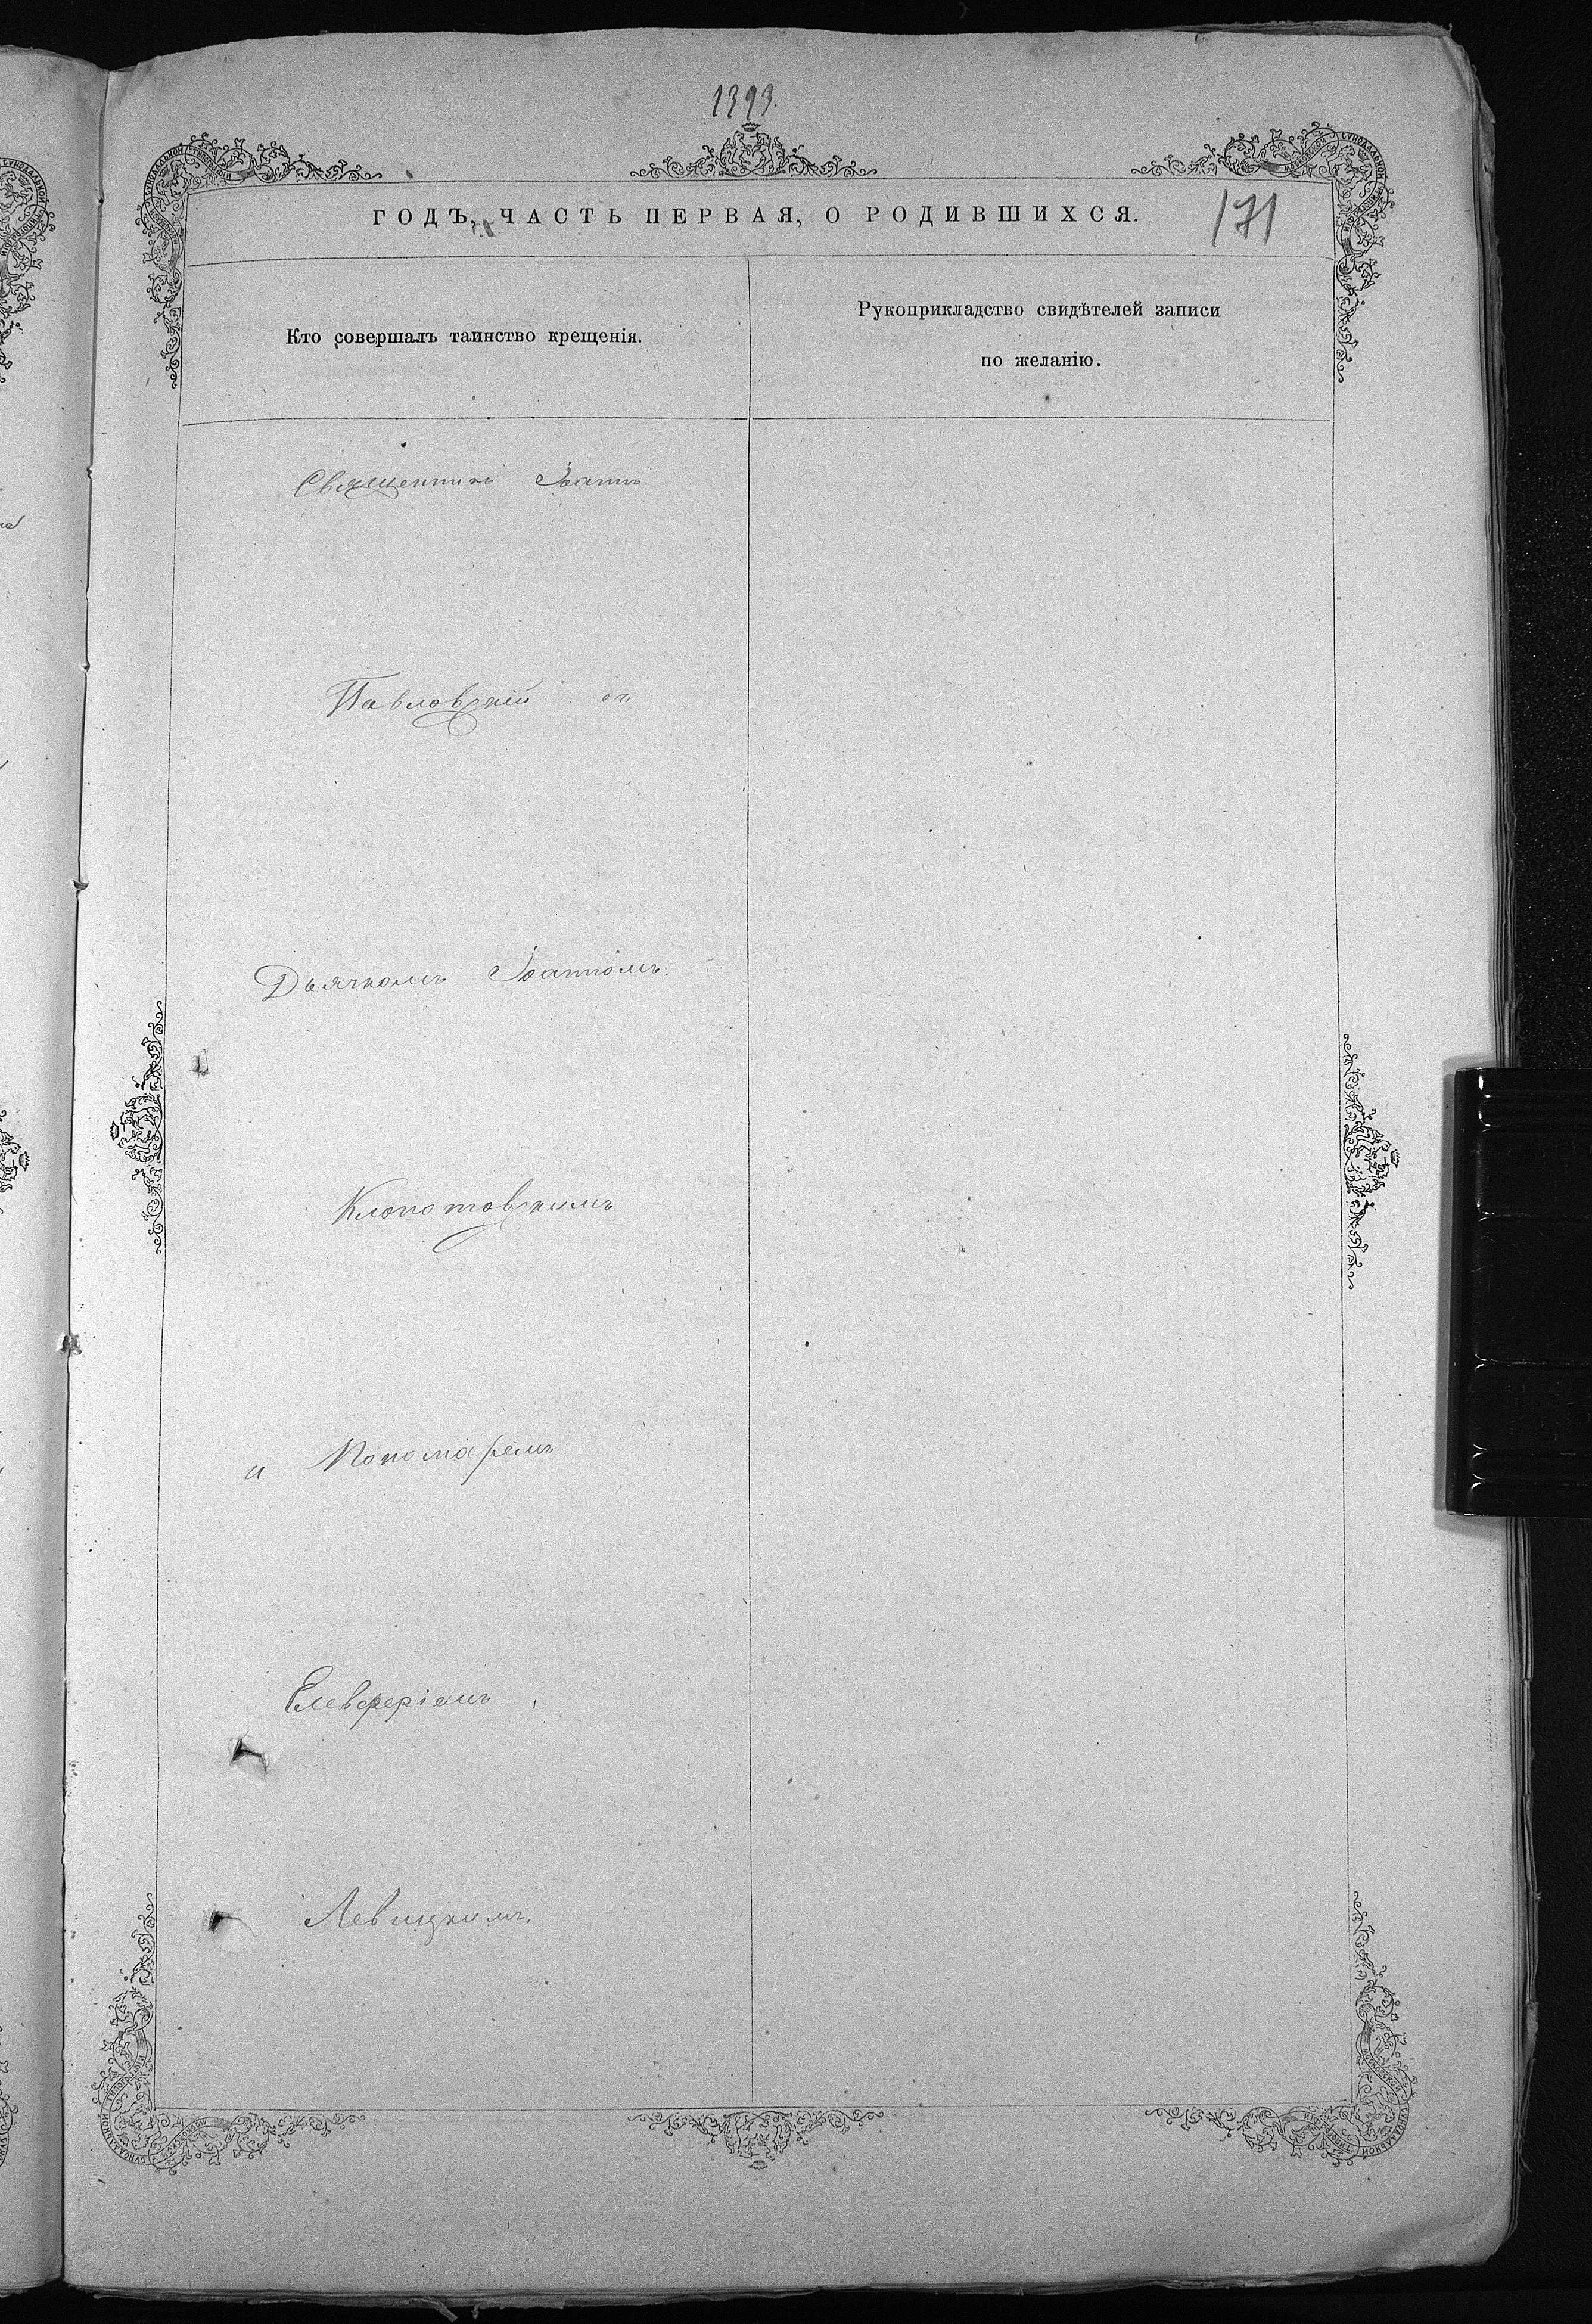 1393.
ГОДЪ, ЧАСТЬ ПЕРВАЯ, О РОДИВШИХСЯ.
171
Кто совершалъ таинство крещенія.
Рукоприкладство свидѣтелей записи
по желанію.
Священникъ Іоаннъ
Павловскій съ
Дьячкомъ Іоанномъ
Клопотовскимъ
и Пономаремъ
Елевферіемъ
Левицкимъ.